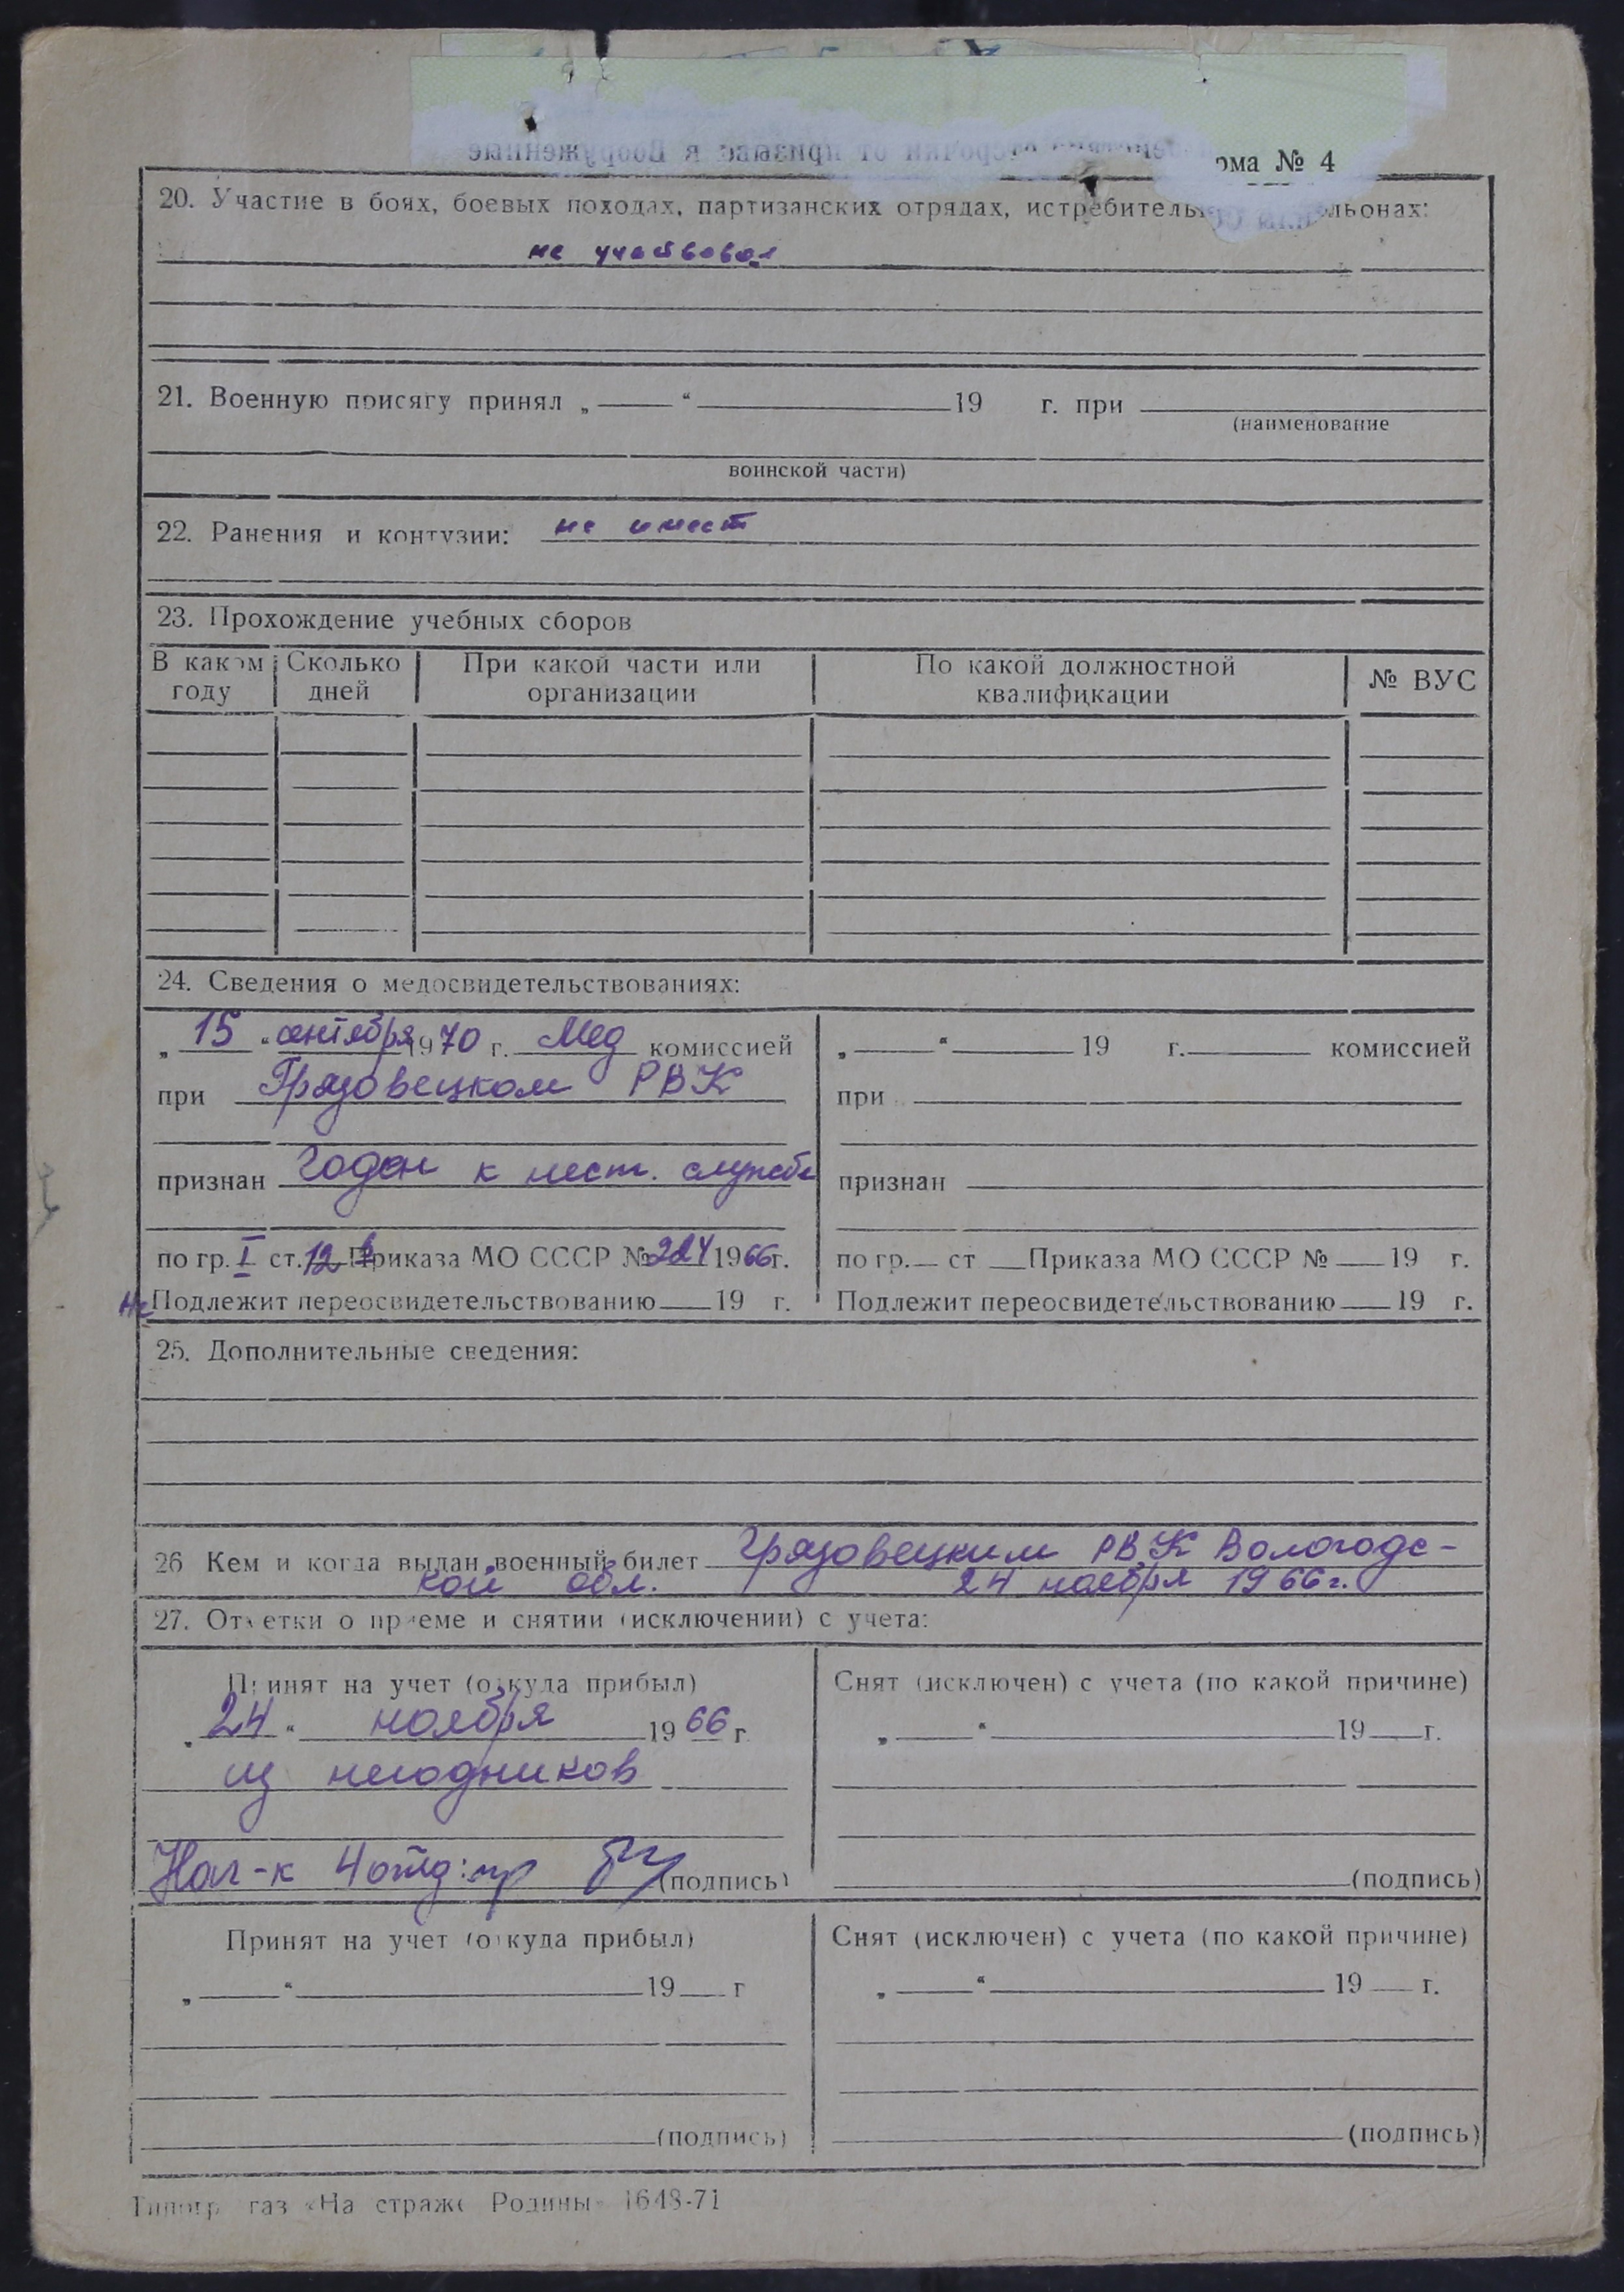 рма № 4
20. Участие в боях, боевых походах, партизанских отрядах, истребитель льонах:
не участвовал
21. Военную присягу принял „ “ 19 г. при
(наименование
воинской части)
22. Ранения и контузии: не имеет
23. Прохождение учебных сборов
В каком году Сколько дней При какой части или организации По какой должностной квалификации № ВУС
24. Сведения о медосвидетельствованиях:
„ 15 “ сентября 1970 г. Мед комиссией
при Грязовецком РВК
признан Годен к нест. службе
по гр. I ст. 12 в Приказа МО СССР № 224 1966 г.
Не Подлежит переосвидетельствованию 19 г.
„ “ 19 г. комиссией
при
признан
по гр. ст Приказа МО СССР № 19 г.
Подлежит переосвидетельствованию 19 г.
25. Дополнительные сведения:
26 Кем и когда выдан военный билет Грязовецким РВК Вологодс-
кой обл. 24 ноября 1966 г.
27. Отметки о приеме и снятии (исключении) с учета:
Принят на учет (откуда прибыл)
„ 24 “ ноября 1966 г
из негодников
Нач-к 4 отд: (подпись)
Снят (исключен) с учета (по какой причине)
„ “ 19 г.
(подпись)
Принят на учет (откуда прибыл)
„ “ 19 г
(подпись)
Снят (исключен) с учета (по какой причине)
„ “ 19 г.
(подпись)
Типогр газ «На страже Родины» 1648-71